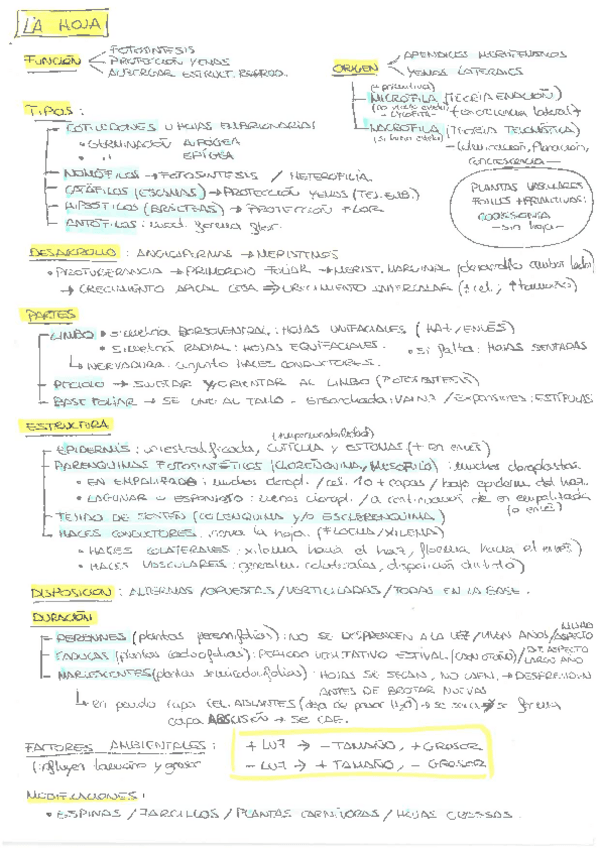 LA HOJA
FUNCIÓN
FOTOSÍNTESIS
PROTECCIÓN YEMAS
ALBERGAR ESTRUCT. REPROD.
ORIGEN
APÉNDICES
YEMAS LATERALES
(+ primitiva)
MICRÓFILA (TEORÍA ENACIÓN)
MACRÓFILA (TEORÍA TELOMÁTICA)
PLANTAS VASCULARES
COOKSONIA
- sin hoja -
TIPOS:
COTILEDONES U HOJAS EMBRIONARIAS
• GERMINACIÓN HIPOGEA
• " EPÍGEA
NOMÓFILOS → FOTOSÍNTESIS / HETEROFILIA.
CATÁFILOS (ESCAMAS) → PROTECCIÓN YEMAS
HIPSÓFILOS (BRÁCTEAS) → PROTECCIÓN FLOR.
ANTÓFILOS:
DESARROLLO: ANGIOSPERMAS → MERISTEMOS
• PROTUBERANCIA → PRIMORDIO FOLIAR → MERIST. MARGINAL (desarrollo ambos lados)
→ CRECIMIENTO APICAL CESA ⇒ CRECIMIENTO INTERCALAR
PARTES
LIMBO • simetría DORSOVENTRAL: HOJAS UNIFACIALES (HAZ/ENVÉS)
• SIMETRÍA RADIAL: HOJAS EQUIFACIALES. • si falta: HOJAS SENTADAS
NERVADURA: conjunto HACES CONDUCTORES.
PECIOLO → SUJETAR Y ORIENTAR AL LIMBO (FOTOSÍNTESIS)
BASE FOLIAR → SE UNE AL TALLO - Ensanchada: VAINA / Expansiones: ESTÍPULAS
ESTRUCTURA
(impermeabilidad)
EPIDERMIS: uniestratificada, CUTÍCULA y ESTOMAS (+ en envés)
PARÉNQUIMAS FOTOSINTÉTICOS (CLORÉNQUIMA, MESÓFILO): muchos cloroplastos.
• EN EMPALIZADA: muchos cloropl. / cel. 10 + capas / bajo epidermis del haz.
• LAGUNAR o ESPONJOSO: menos cloropl. / a continuación de en empalizada
(o envés)
TEJIDO DE SOSTÉN (COLÉNQUIMA y/o ESCLERÉNQUIMA)
HACES CONDUCTORES. nerva la hoja. (FLOEMA/XILEMA)
• HACES COLATERALES: xilema hacia el haz, floema hacia el envés)
• HACES VASCULARES:
DISPOSICIÓN: ALTERNAS / OPUESTAS / VERTICILADAS / TODAS EN LA BASE.
DURACIÓN
PERENNES (plantas perennifolias): NO SE DESPRENDEN A LA VEZ / VARIOS AÑOS / ASPECTO
CADUCAS (plantas caducifolias): PERIODO VEGETATIVO ESTIVAL / CAEN OTOÑO / ASPECTO
LARGO AÑO
MARCESCENTES (plantas semicaducifolias): HOJAS SE SECAN, NO CAEN, → DESPRENDEN
ANTES DE BROTAR NUEVAS
capa ABSCISIÓN → SE CAE.
FACTORES AMBIENTALES:
(influyen tamaño y grosor
+ LUZ → - TAMAÑO, + GROSOR
- LUZ → + TAMAÑO, - GROSOR
MODIFICACIONES:
• ESPINAS / ZARCILLOS / PLANTAS CARNÍVORAS / HOJAS CRASAS.